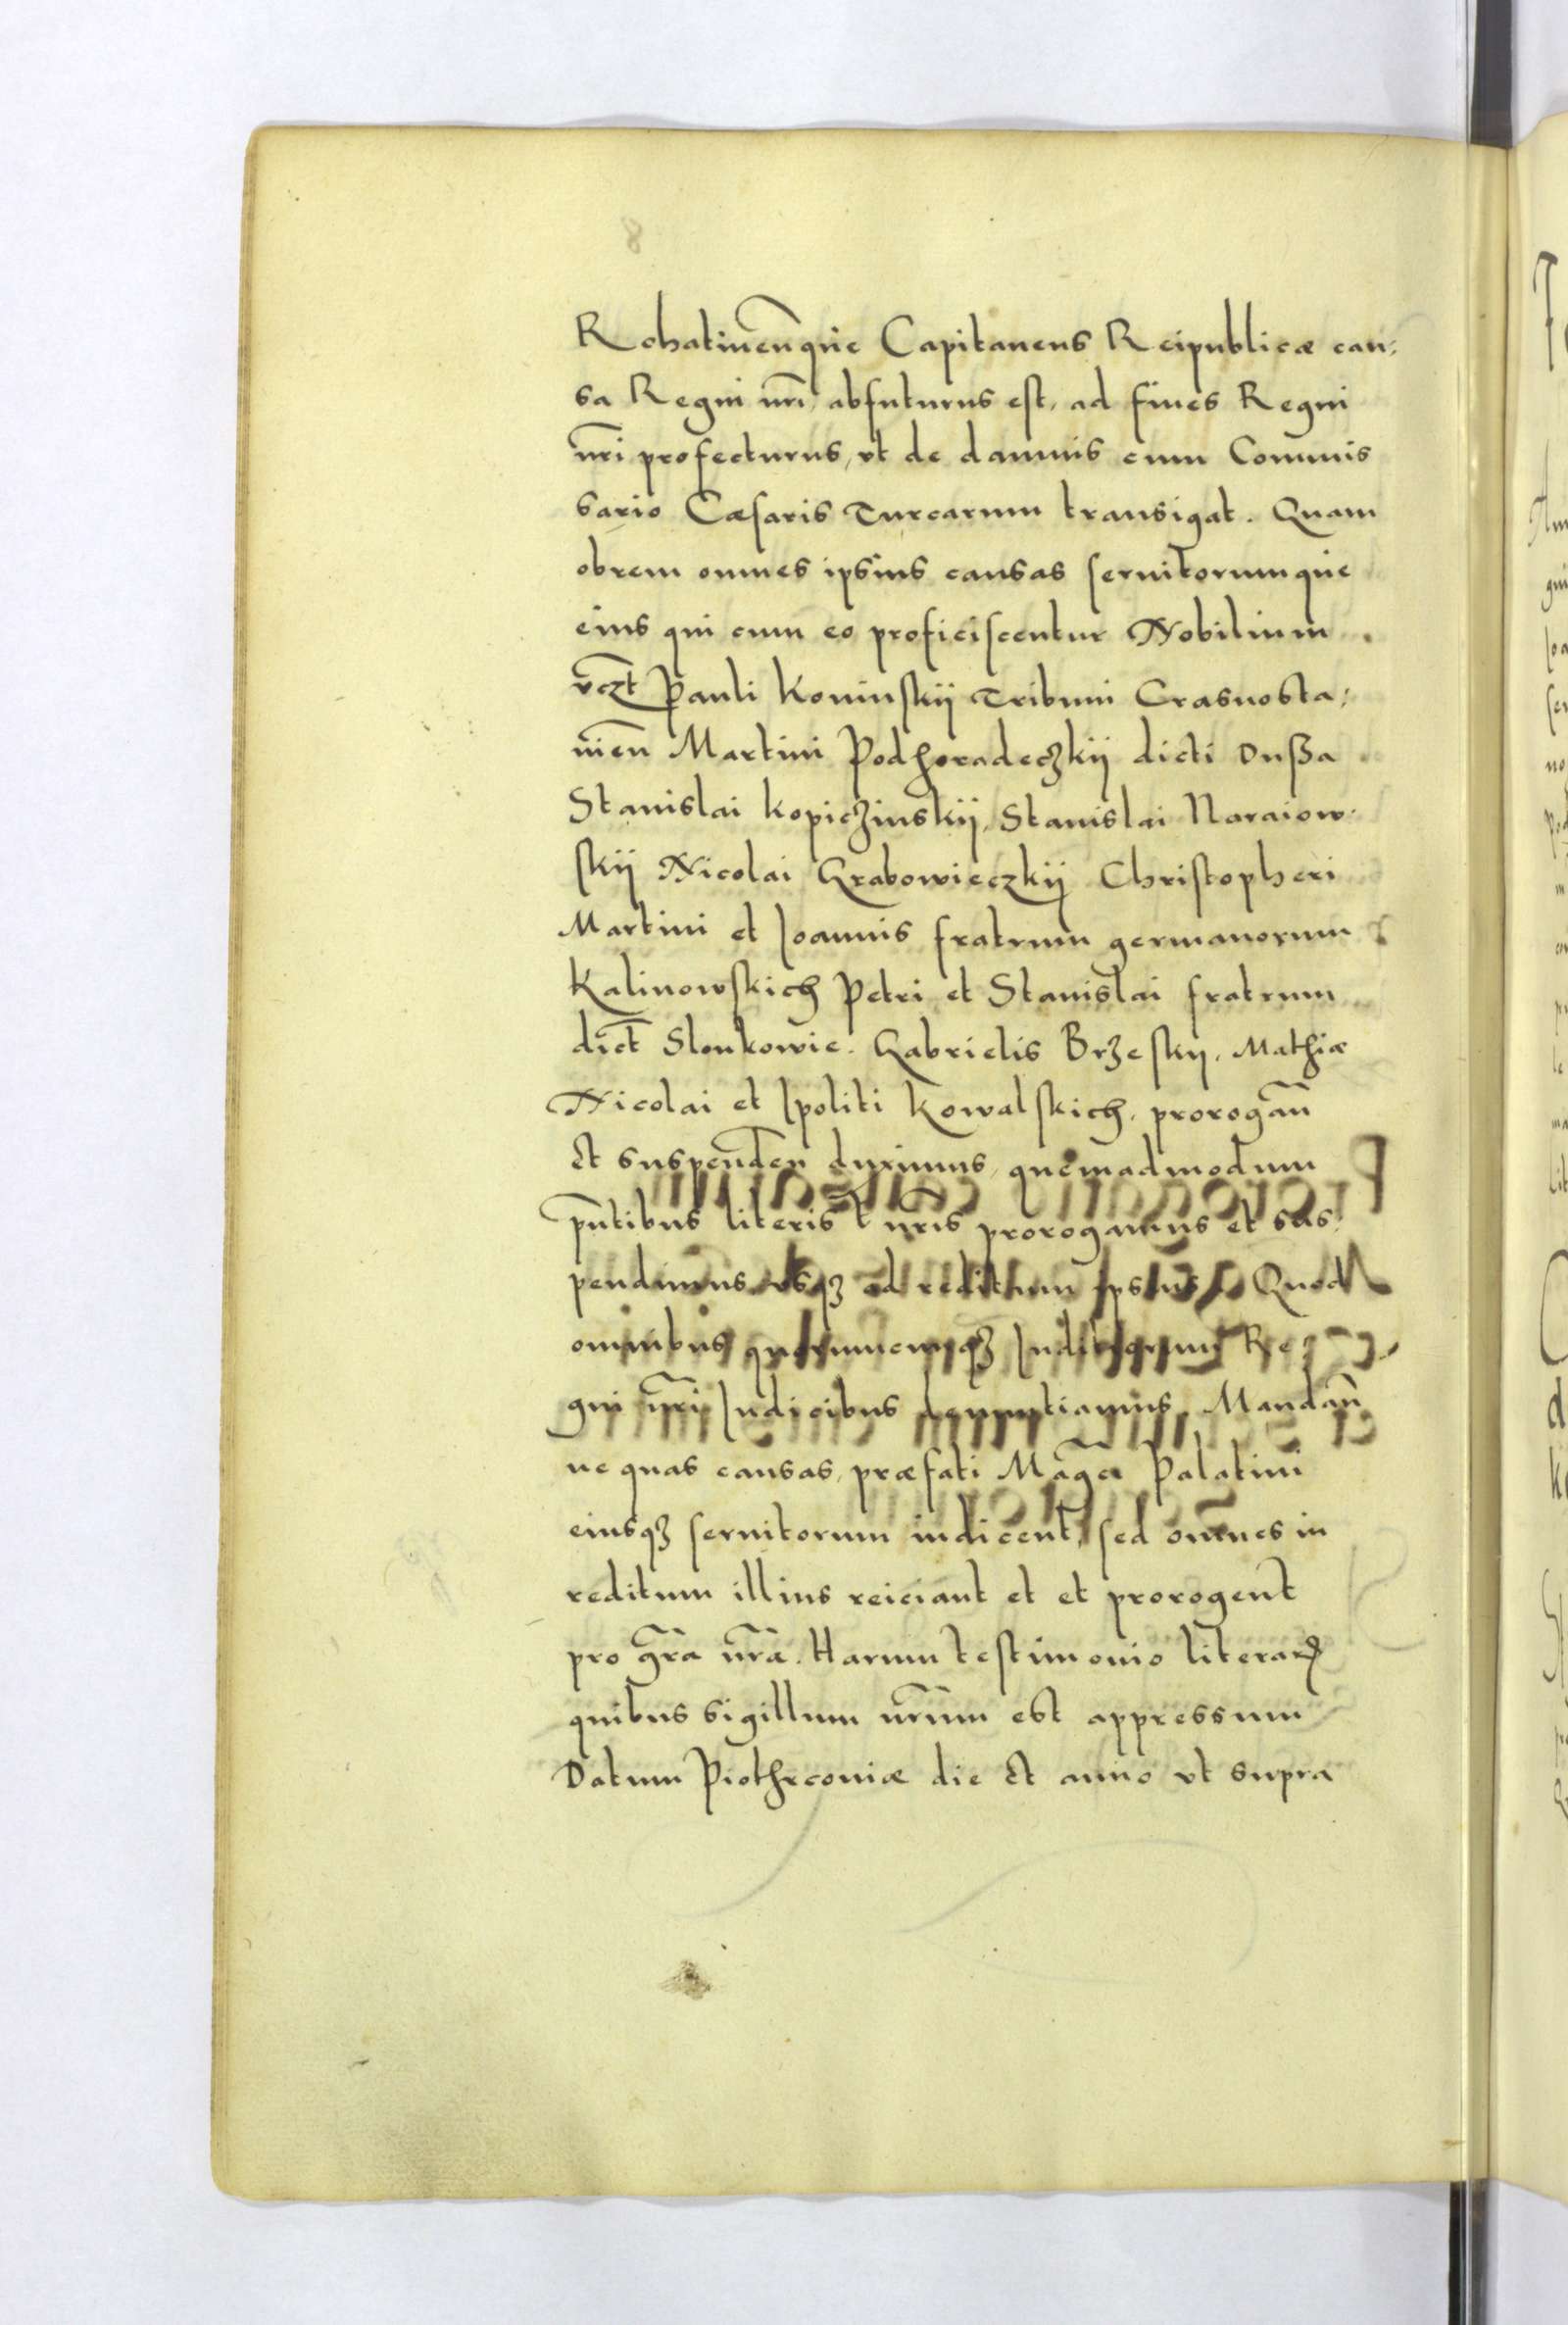 Rohatinen̄que Capitaneus Reipublicæ cau-
sa Regni nr̄i, abfuturus est, ad fines Regni
nr̄i profecturus, vt de damnis cum Commis
sario Cæsaris Turcarum transigat. Quam
obrem omnes ipsius causas seruitorumque
eius qui cum eo proficiscentur Nobilium
vcz̄t Pauli Koninskij Tribuni Crasnosta-
uien̄ Martini Podhoradeczkij dicti Dußa
Stanislai Kopiczinskij, Stanislai Naraiow-
skij Nicolai Grabowieczkij Christopheri
Martini et Ioannis fratrum germanorum
Kalinowskich Petri et Stanislai fratrum
dict̄ Slonkowie. Gabrielis Brzesky, Mathiæ
Nicolai et Ipoliti Kowalskich, prorogan̄
et suspenden̄ duximus, quemadmodum
pn̄tibus literis nr̄is prorogamus et sus-
pendimus vsqꝫ ad reditum ipsius. Quod
omnibus quorumcunqꝫ Iudiciorum Re-
gni nr̄i Iudicibus denuntiamus. Mandan̄
ne quas causas, præfati Maḡci Palatini
eiusqꝫ seruitorum iudicent, sed omnes in
reditum illius reiciant et et prorogent
pro gr̄a nr̄a. Harum testimonio literaꝝ
quibus sigillum nr̄um est appressum
Datum Piothrconiæ die et anno vt supra